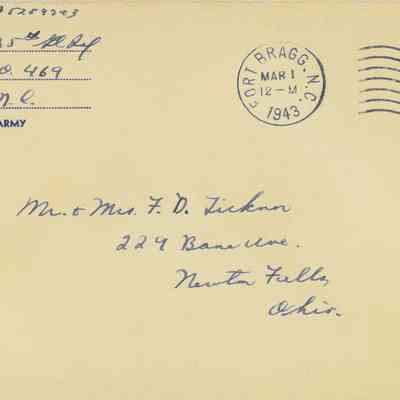 0259293
5th
O. 469
N. C.
ARMY
FORT BRAGG, N.C.
MAR 1
12-M
1943
Mr. & Mrs. F. D. Ticknor
229 Bane Ave.
Newton Falls,
Ohio.